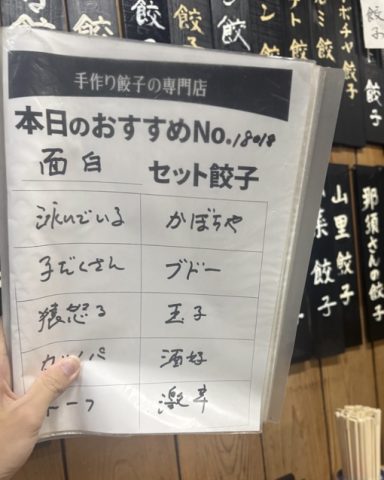 手作り餃子の専門店
本日のおすすめNo.18018
面白 セット餃子
泳いでいる かぼちゃ
子だくさん ブドー
猿怒る 玉子
カッパ 酒好
トーフ 激辛
餃子
餃子
餃子
ト餃子
ミ餃子
ボチャ餃子
餃子
菜餃子
山里餃子
那須さんの餃子